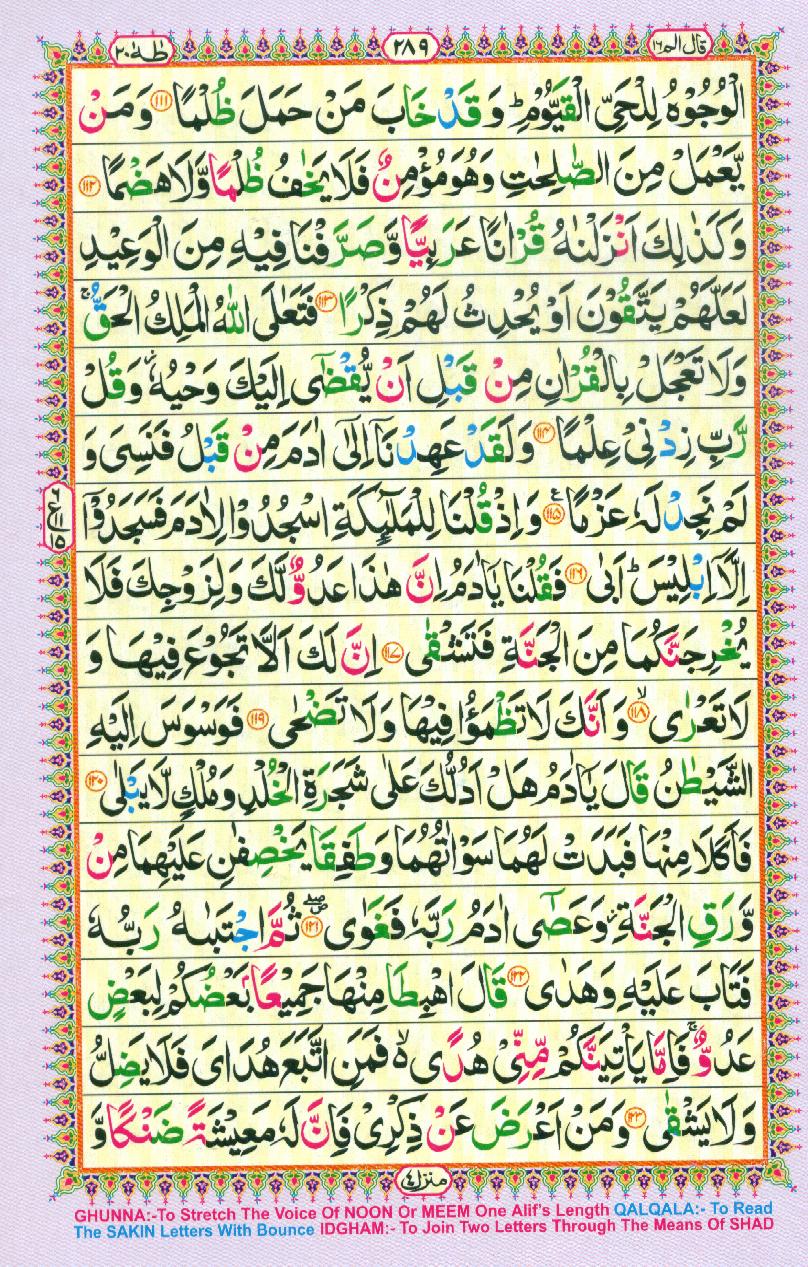 قال الم ١٦
٢٨٩
طٰهٰ ٢٠
الْوُجُوْهُ لِلْحَیِّ الْقَیُّوْمِ ؕ وَ قَدْ خَابَ مَنْ حَمَلَ ظُلْمًا ﴿۱۱۱﴾ وَ مَنْ
یَّعْمَلْ مِنَ الصّٰلِحٰتِ وَهُوَ مُؤْمِنٌ فَلَا یَخٰفُ ظُلْمًا وَّلَا هَضْمًا ﴿۱۱۲﴾
وَكَذٰلِكَ اَنْزَلْنٰهُ قُرْاٰنًا عَرَبِیًّا وَّ صَرَّفْنَا فِیْهِ مِنَ الْوَعِیْدِ
لَعَلَّهُمْ یَتَّقُوْنَ اَوْ یُحْدِثُ لَهُمْ ذِكْرًا ﴿۱۱۳﴾ فَتَعٰلَی اللّٰهُ الْمَلِكُ الْحَقُّ ۚ
وَلَا تَعْجَلْ بِالْقُرْاٰنِ مِنْ قَبْلِ اَنْ یُّقْضٰۤی اِلَیْكَ وَحْیُهٗ ؗ وَقُلْ
رَّبِّ زِدْنِیْ عِلْمًا ﴿۱۱۴﴾ وَلَقَدْ عَهِدْنَاۤ اِلٰۤی اٰدَمَ مِنْ قَبْلُ فَنَسِیَ وَ
لَمْ نَجِدْ لَهٗ عَزْمًا ﴿۱۱۵﴾ ع وَاِذْ قُلْنَا لِلْمَلٰٓىِٕكَةِ اسْجُدُوْا لِاٰدَمَ فَسَجَدُوْۤا
اِلَّاۤ اِبْلِیْسَ ؕ اَبٰی ﴿۱۱۶﴾ فَقُلْنَا یٰۤاٰدَمُ اِنَّ هٰذَا عَدُوٌّ لَّكَ وَلِزَوْجِكَ فَلَا
یُخْرِجَنَّكُمَا مِنَ الْجَنَّةِ فَتَشْقٰی ﴿۱۱۷﴾ اِنَّ لَكَ اَلَّا تَجُوْعَ فِیْهَا وَ
لَا تَعْرٰی ۙ﴿۱۱۸﴾ وَ اَنَّكَ لَا تَظْمَؤُا فِیْهَا وَلَا تَضْحٰی ﴿۱۱۹﴾ فَوَسْوَسَ اِلَیْهِ
الشَّیْطٰنُ قَالَ یٰۤاٰدَمُ هَلْ اَدُلُّكَ عَلٰی شَجَرَةِ الْخُلْدِ وَمُلْكٍ لَّا یَبْلٰی ﴿۱۲۰﴾
فَاَكَلَا مِنْهَا فَبَدَتْ لَهُمَا سَوْاٰتُهُمَا وَطَفِقَا یَخْصِفٰنِ عَلَیْهِمَا مِنْ
وَّرَقِ الْجَنَّةِ ؗ وَعَصٰۤی اٰدَمُ رَبَّهٗ فَغَوٰی ﴿۱۲۱﴾ ثُمَّ اجْتَبٰىهُ رَبُّهٗ
فَتَابَ عَلَیْهِ وَهَدٰی ﴿۱۲۲﴾ قَالَ اهْبِطَا مِنْهَا جَمِیْعًۢا بَعْضُكُمْ لِبَعْضٍ
عَدُوٌّ ۚ فَاِمَّا یَاْتِیَنَّكُمْ مِّنِّیْ هُدًی ۙ۬ فَمَنِ اتَّبَعَ هُدَایَ فَلَا یَضِلُّ
وَلَا یَشْقٰی ﴿۱۲۳﴾ وَمَنْ اَعْرَضَ عَنْ ذِكْرِیْ فَاِنَّ لَهٗ مَعِیْشَةً ضَنْكًا وَّ
٦
ع ١١
١٥
منزل ٤
GHUNNA:-To Stretch The Voice Of NOON Or MEEM One Alif's Length QALQALA:- To Read
The SAKIN Letters With Bounce IDGHAM:- To Join Two Letters Through The Means Of SHAD